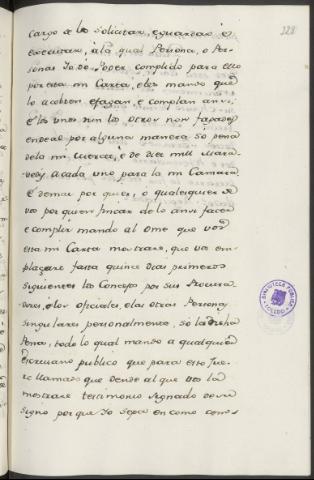 328
cargo de lo solicitar, e guardar e
executar, a la qual Persona, o Per-
sonas Yo do Poder complido para ello
por esta mi Carta, e les mando que
lo acepten e fagan, e complan ansi,
e los unos nin los otros non fagades
ende al por alguna manera so pena
de la mi Merced, e de diez mill Mara-
vedis a cada uno para la mi Camara
e demas por quien, o qualesquier de
vos por quien fincar de lo ansi facer
e complir mando al ome que vos
esta mi Carta mostrare, que vos em-
plazare fasta quince dias primeros
siguientes los Concejos por sus Procura-
dores, e los oficiales, e las otras Personas
singulares personalmente, so la dicha
Pena, todo lo qual mando a qualquier
Escrivano publico que para esto fue-
re llamado que dende al que vos la
mostrare testimonio signado de su
signo por que Yo sepa en como com-
BIBLIOTECA PUBLICA
TOLEDO